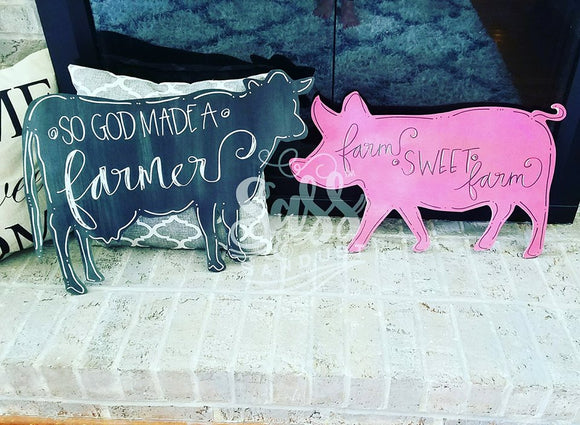 SO GOD MADE A
farmer
farm
SWEET
farm